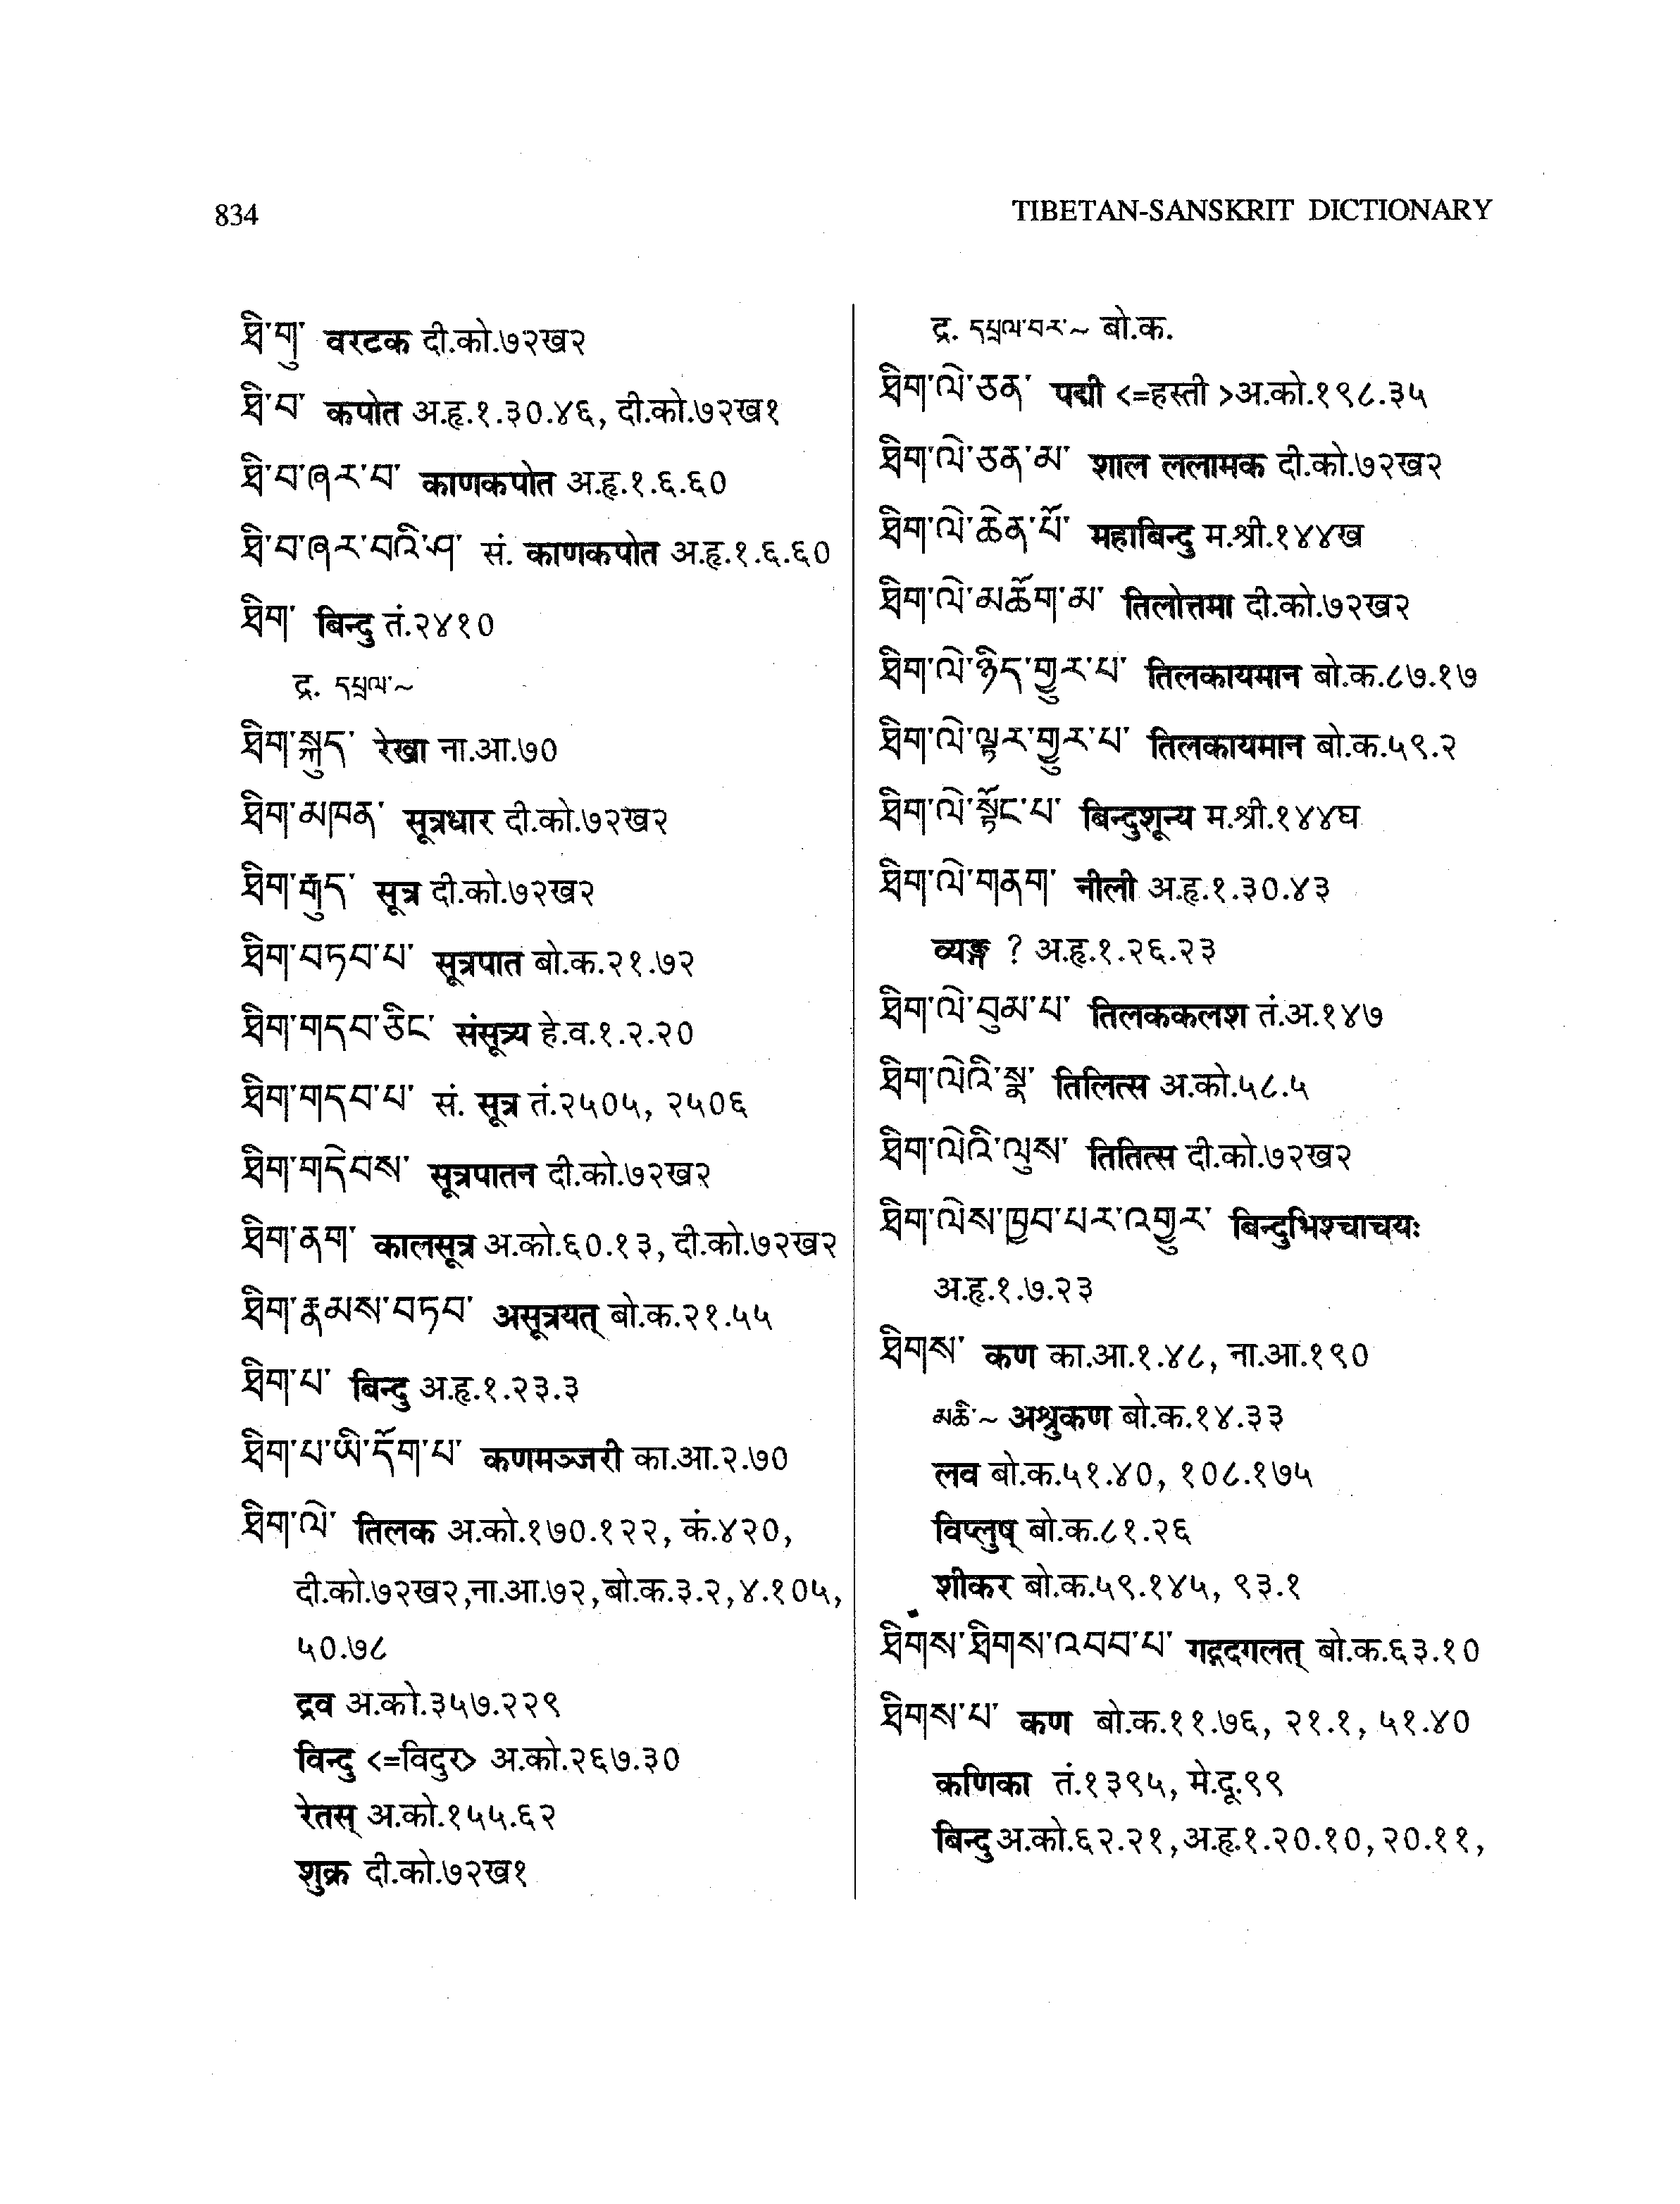 834
TIBETAN-SANSKRIT DICTIONARY
ཐི་གུ་ वरटक दी.को.७२ख२
ཐི་བ་ कपोत अ.हृ.१.३०.४६, दी.को.७२ख१
ཐི་བ་ཞར་བ་ काणकपोत अ.हृ.१.६.६०
ཐི་བ་ཞར་བའི་ཤ་ सं. काणकपोत अ.हृ.१.६.६०
ཐིག་ बिन्दु तं.२४१०
द्र. དཔྲལ་~
ཐིག་སྐུད་ रेखा ना.आ.७०
ཐིག་མཁན་ सूत्रधार दी.को.७२ख२
ཐིག་རྒུད་ सूत्र दी.को.७२ख२
ཐིག་བཏབ་པ་ सूत्रपात बो.क.२१.७२
ཐིག་གདབ་ཅིང་ संसूत्र्य हे.व.१.२.२०
ཐིག་གདབ་པ་ सं. सूत्र तं.२५०५, २५०६
ཐིག་གདེབས་ सूत्रपातन दी.को.७२ख२
ཐིག་ནག་ कालसूत्र अ.को.६०.१३, दी.को.७२ख२
ཐིག་རྣམས་བཏབ་ असूत्रयत् बो.क.२१.५५
ཐིག་པ་ बिन्दु अ.हृ.१.२३.३
ཐིག་པ་ཡི་དོག་པ་ कणमञ्जरी का.आ.२.७०
ཐིག་ལེ་ तिलक अ.को.१७०.१२२, कं.४२०,
दी.को.७२ख२,ना.आ.७२,बो.क.३.२,४.१०५,
५०.७८
द्रव अ.को.३५७.२२९
विन्दु <=विदुर> अ.को.२६७.३०
रेतस् अ.को.१५५.६२
शुक्र दी.को.७२ख१
द्र. དཔྲལ་བར་~ बो.क.
ཐིག་ལེ་ཅན་ पद्मी <=हस्ती >अ.को.१९८.३५
ཐིག་ལེ་ཅན་མ་ शाल ललामक दी.को.७२ख२
ཐིག་ལེ་ཆེན་པོ་ महाबिन्दु म.श्री.१४४ख
ཐིག་ལེ་མཆོག་མ་ तिलोत्तमा दी.को.७२ख२
ཐིག་ལེ་ཉིད་གྱུར་པ་ तिलकायमान बो.क.८७.१७
ཐིག་ལེ་ལྟར་གྱུར་པ་ तिलकायमान बो.क.५९.२
ཐིག་ལེ་སྟོང་པ་ बिन्दुशून्य म.श्री.१४४घ
ཐིག་ལེ་གནག་ नीली अ.हृ.१.३०.४३
व्यङ्ग ? अ.हृ.१.२६.२३
ཐིག་ལེ་བུམ་པ་ तिलककलश तं.अ.१४७
ཐིག་ལེའི་སྣ་ तिलित्स अ.को.५८.५
ཐིག་ལེའི་ལུས་ तितित्स दी.को.७२ख२
ཐིག་ལེས་ཁྱབ་པར་འགྱུར་ बिन्दुभिश्चाचयः
अ.हृ.१.७.२३
ཐིགས་ कण का.आ.१.४८, ना.आ.१९०
མཆི་~ अश्रुकण बो.क.१४.३३
लव बो.क.५१.४०, १०८.१७५
विप्लुष् बो.क.८१.२६
शीकर बो.क.५९.१४५, ९३.१
ཐིགས་ཐིགས་འབབ་པ་ गद्गदगलत् बो.क.६३.१०
ཐིགས་པ་ कण बो.क.११.७६, २१.१, ५१.४०
कणिका तं.१३९५, मे.दू.९९
बिन्दु अ.को.६२.२१,अ.हृ.१.२०.१०,२०.११,